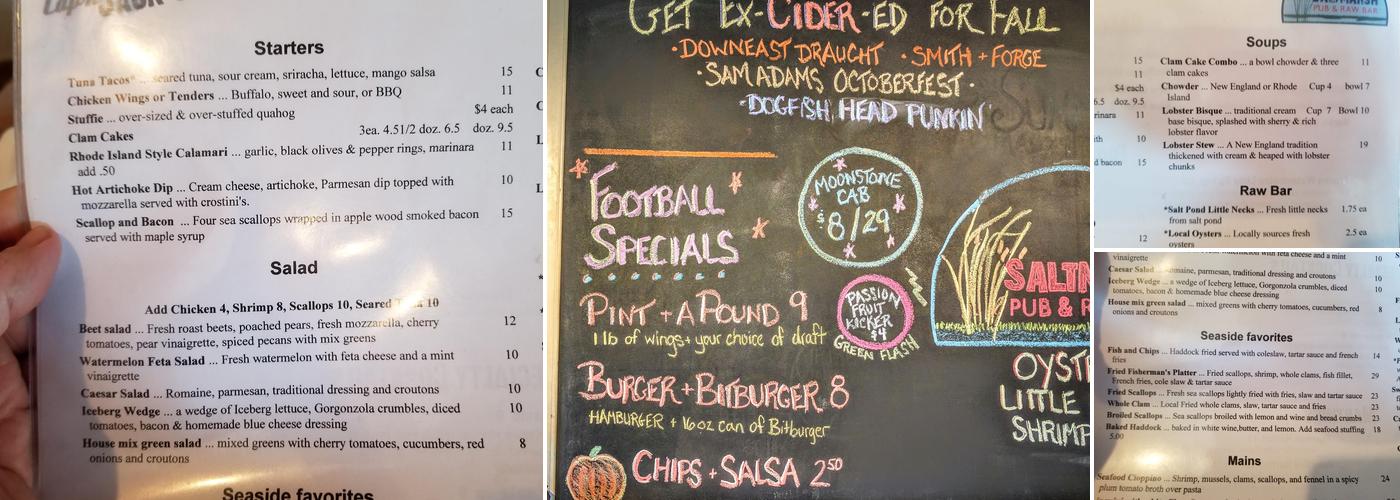 Starters
Tuna Tacos* ... seared tuna, sour cream, sriracha, lettuce, mango salsa 15
Chicken Wings or Tenders ... Buffalo, sweet and sour, or BBQ 11
Stuffie ... over-sized & over-stuffed quahog $4 each
Clam Cakes 3ea. 4.51/2 doz. 6.5 doz. 9.5
Rhode Island Style Calamari ... garlic, black olives & pepper rings, marinara 11
add .50
Hot Artichoke Dip ... Cream cheese, artichoke, Parmesan dip topped with 10
mozzarella served with crostini's.
Scallop and Bacon ... Four sea scallops wrapped in apple wood smoked bacon 15
served with maple syrup
Salad
Add Chicken 4, Shrimp 8, Scallops 10, Seared 10
Beet salad ... Fresh roast beets, poached pears, fresh mozzarella, cherry 12
tomatoes, pear vinaigrette, spiced pecans with mix greens
Watermelon Feta Salad ... Fresh watermelon with feta cheese and a mint 10
vinaigrette
Caesar Salad ... Romaine, parmesan, traditional dressing and croutons 10
Iceberg Wedge ... a wedge of Iceberg lettuce, Gorgonzola crumbles, diced 10
tomatoes, bacon & homemade blue cheese dressing
House mix green salad ... mixed greens with cherry tomatoes, cucumbers, red 8
onions and croutons
Seaside favorites
GET EX-CIDER-ED FOR FALL
·DOWNEAST DRAUGHT ·SMITH + FORGE
·SAM ADAMS OCTOBERFEST·
·DOGFISH HEAD PUNKIN'
FOOTBALL
SPECIALS
PINT + A POUND 9
1 lb of wings + your choice of draft
BURGER + BITBURGER 8
HAMBURGER + 16oz can of Bitburger
CHIPS + SALSA 2.50
MOONSTONE
CAB
$8/29
PASSION
FRUIT
KICKER
$4
GREEN FLASH
SALTM
PUB & R
OYST
LITTLE
SHRIMP
PUB & RAW BAR
Soups
15
11
$4 each
6.5 doz. 9.5
rinara 11
ith 10
d bacon 15
12
Clam Cake Combo ... a bowl chowder & three 11
clam cakes
Chowder ... New England or Rhode Cup 4 bowl 7
Island
Lobster Bisque ... traditional cream Cup 7 Bowl 10
base bisque, splashed with sherry & rich
lobster flavor
Lobster Stew ... A New England tradition 19
thickened with cream & heaped with lobster
chunks
Raw Bar
*Salt Pond Little Necks ... Fresh little necks 1.75 ea
from salt pond
*Local Oysters ... Locally sources fresh 2.5 ea
oysters
vinaigrette 10
Caesar Salad ... Romaine, parmesan, traditional dressing and croutons 10
Iceberg Wedge ... a wedge of Iceberg lettuce, Gorgonzola crumbles, diced 10
tomatoes, bacon & homemade blue cheese dressing
House mix green salad ... mixed greens with cherry tomatoes, cucumbers, red 8
onions and croutons
Seaside favorites
Fish and Chips ... Haddock fried served with coleslaw, tartar sauce and french 14
fries
Fried Fisherman's Platter ... Fried scallops, shrimp, whole clams, fish fillet, 29
French fries, cole slaw & tartar sauce
Fried Scallops ... Fresh sea scallops lightly fried with fries, slaw and tartar sauce 23
Whole Clam ... Local Fried whole clams, slaw, tartar sauce and fries 23
Broiled Scallops ... Sea scallops broiled with lemon and wine and bread crumbs 23
Baked Haddock ... baked in white wine,butter, and lemon. Add seafood stuffing 18
5.00
Mains
Seafood Cioppino ... Shrimp, mussels, clams, scallops, and fennel in a spicy 24
plum tomato broth over pasta